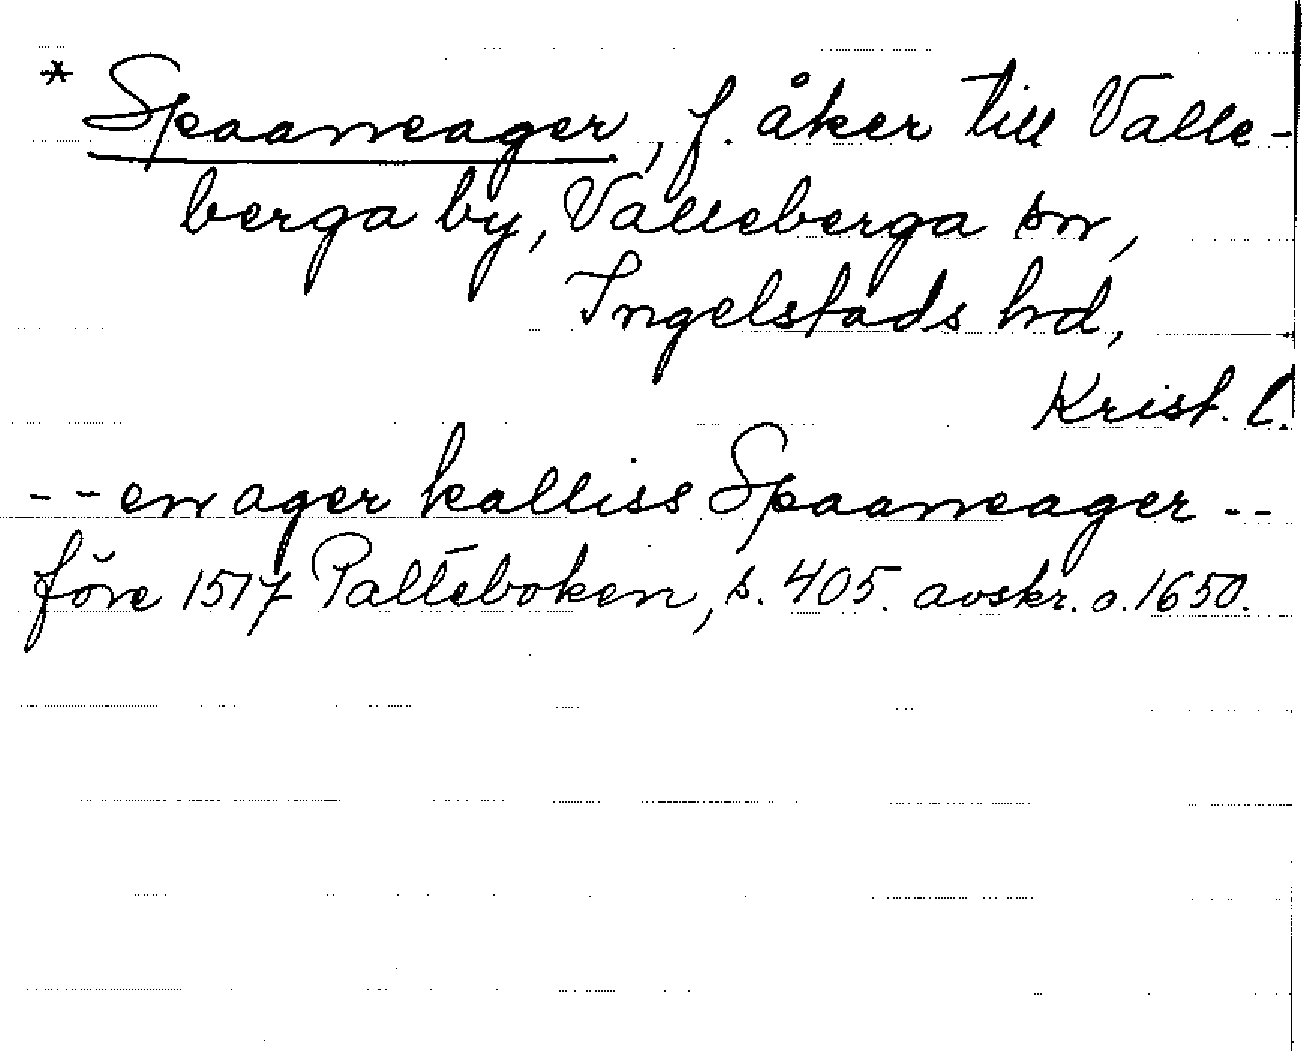 * Spaaneager, f. åker till Valle-
berga by, Valleberga sn,
Ingelstads hd,
Krist. l.
-- en ager kalliss Spaaneager --
före 1517 Palteboken, s. 405. avskr. o. 1650.